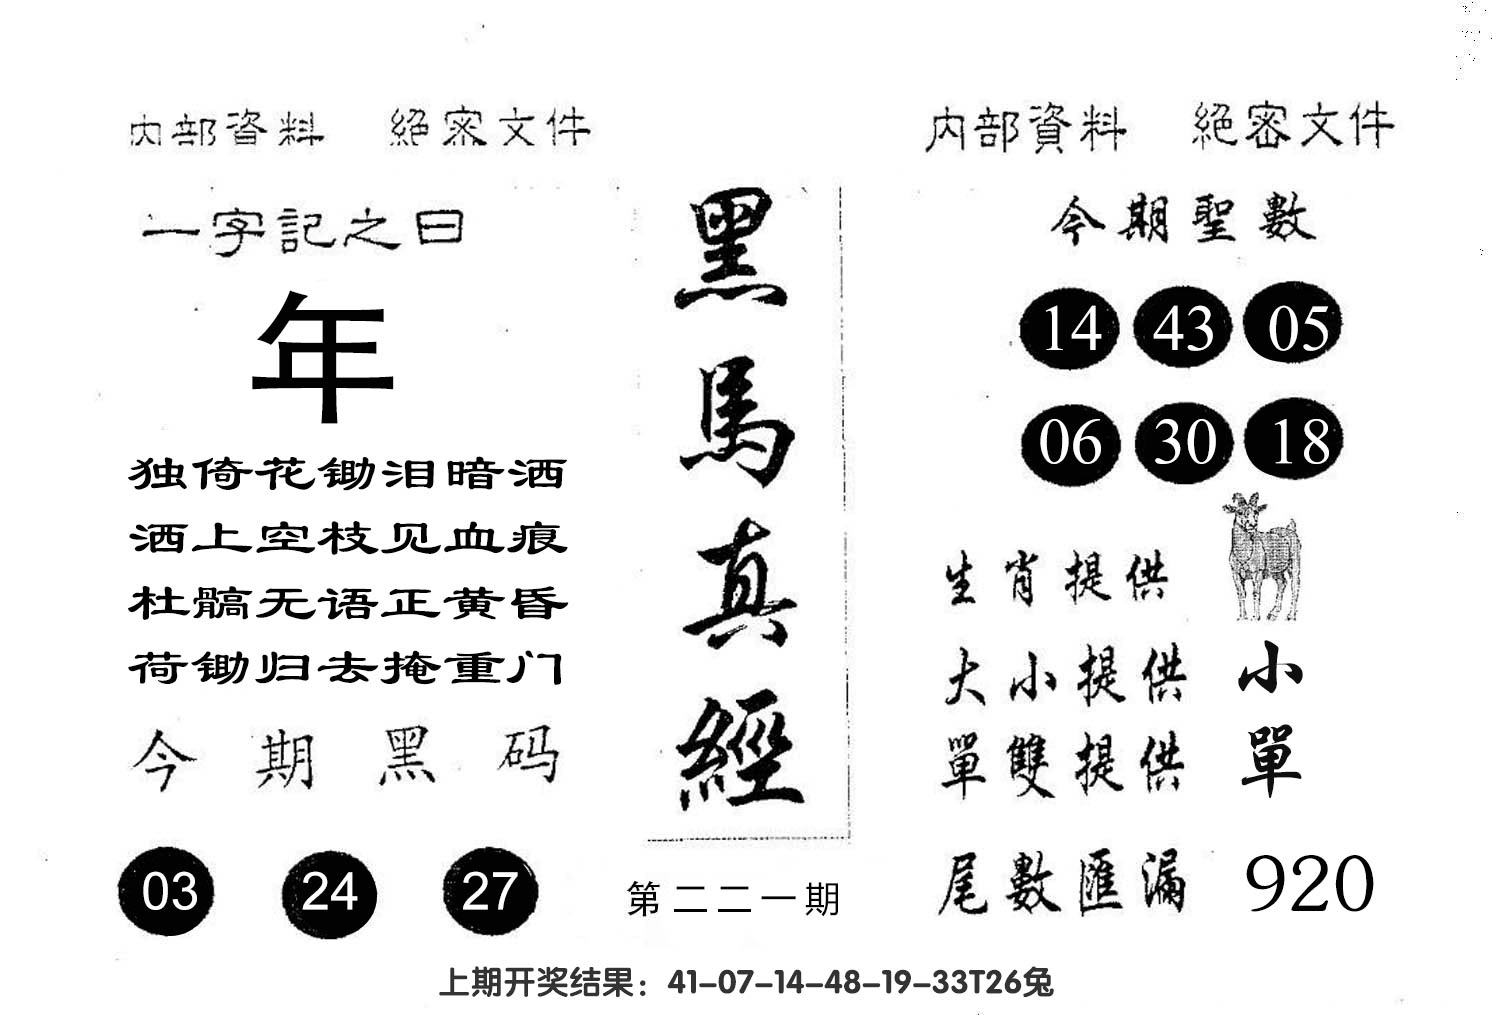 内部資料 絕密文件
一字記之曰
年
独倚花锄泪暗洒
洒上空枝见血痕
杜髇无语正黄昏
荷锄归去掩重门
今期黑码
03 24 27
黑馬真經
第二二一期
内部資料 絕密文件
今期聖數
14 43 05
06 30 18
生肖提供
大小提供 小
單雙提供 單
尾數匯漏 920
上期开奖结果：41-07-14-48-19-33T26兔